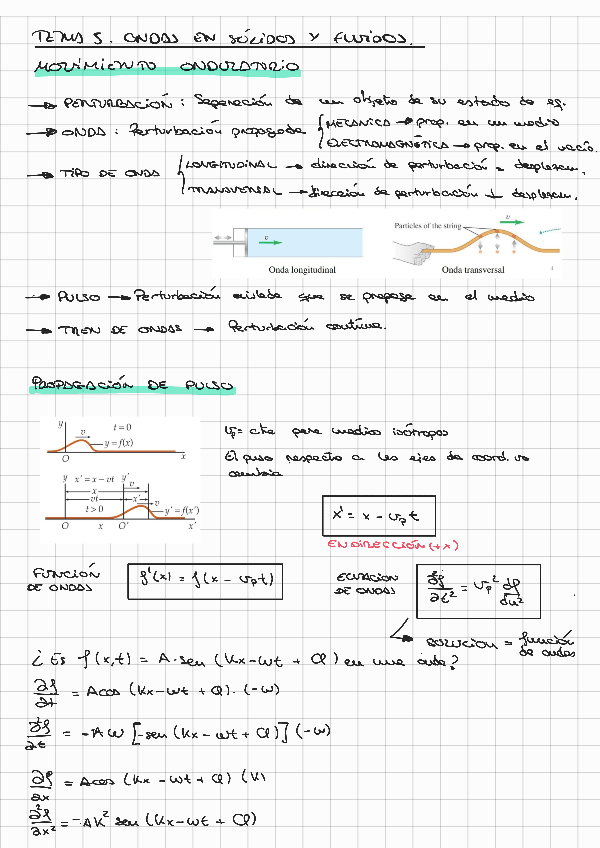 TEMA 5. ONDAS EN SÓLIDOS Y FLUIDOS.
MOVIMIENTO ONDULATORIO
→ PERTURBACIÓN: Separación de un objeto de su estado de eq.
→ ONDA: Perturbación propagada { MECÁNICA → prop. en un medio
ELECTROMAGNÉTICA → prop. en el vacío.
→ TIPO DE ONDA { LONGITUDINAL → dirección de perturbación = desplazam.
TRANSVERSAL → dirección de perturbación ⊥ desplazam.
v
Onda longitudinal
Particles of the string
v
Onda transversal
4
→ PULSO → Perturbación aislada que se propaga en el medio
→ TREN DE ONDAS → Perturbación continua.
PROPAGACIÓN DE PULSO
y v t = 0
y = f(x)
O x
y x' = x − vt y'
x v
vt x' v
t > 0 y' = f(x')
O x O' x'
vp = cte para medios isótropos
El pulso respecto a los ejes de coord. no
cambia
x' = x − vp t
EN DIRECCIÓN (+x)
FUNCIÓN
DE ONDAS
f'(x) = f(x − vp t)
ECUACION
DE ONDAS
∂²f/∂t² = vp² ∂f/∂x²
→ SOLUCION = función
de ondas
¿Es f(x,t) = A·sen (kx−ωt + φ) en una onda?
∂f/∂t = A cos (kx − ωt + φ)·(−ω)
∂²f/∂t = −Aω [−sen (kx − ωt + φ)] (−ω)
∂f/∂x = A cos (kx − ωt + φ) (k)
∂²f/∂x² = −Ak² sen (kx−ωt + φ)